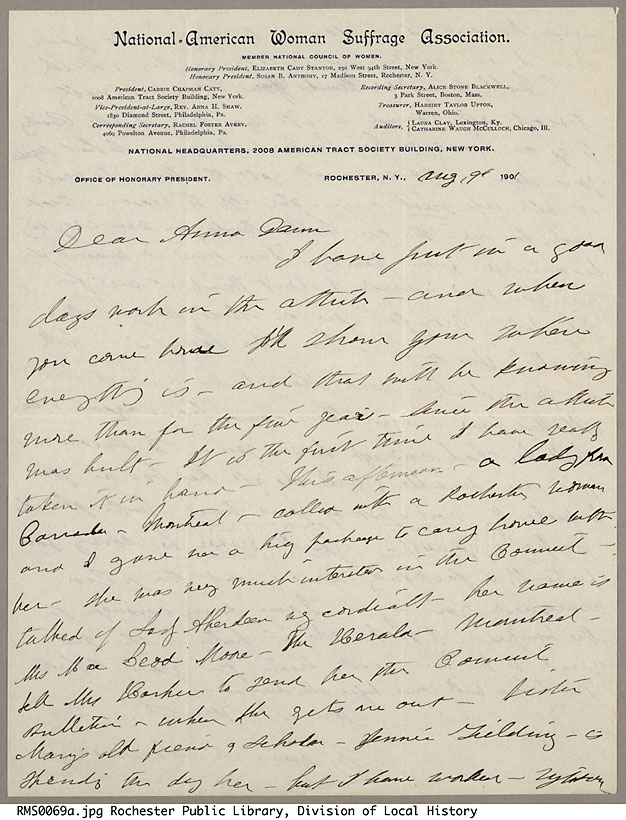 National-American Woman Suffrage Association.
MEMBER NATIONAL COUNCIL OF WOMEN.
Honorary President, ELIZABETH CADY STANTON, 250 West 94th Street, New York.
Honorary President, SUSAN B. ANTHONY, 17 Madison Street, Rochester, N. Y.
President, CARRIE CHAPMAN CATT,
2008 American Tract Society Building, New York.
Vice-President-at-Large, REV. ANNA H. SHAW,
1830 Diamond Street, Philadelphia, Pa.
Corresponding Secretary, RACHEL FOSTER AVERY,
4069 Powelton Avenue, Philadelphia, Pa.
Recording Secretary, ALICE STONE BLACKWELL,
3 Park Street, Boston, Mass.
Treasurer, HARRIET TAYLOR UPTON,
Warren, Ohio.
Auditors, { LAURA CLAY, Lexington, Ky.
CATHARINE WAUGH MCCULLOCH, Chicago, Ill.
NATIONAL HEADQUARTERS, 2008 AMERICAN TRACT SOCIETY BUILDING, NEW YORK.
OFFICE OF HONORARY PRESIDENT.
ROCHESTER, N. Y., Aug. 9 1901
Dear Anna Dann
I have put in a good
days work in the attic – and when
you come home I'll show you where
everything is – and that will be knowing
more than for the five years – since the attic
was built – It is the first time I have really
taken it in hand – This afternoon – a lady from
Canada – Montreal – called with a Rochester woman
and I gave her a big package to carry home with
her – She was very much interested in the Council –
talked of Lady Aberdeen very cordially – her name is
Mrs Mac Leod Moore – The Herald – Montreal –
tell Mrs to send her the Council
Bulletin – when she gets one out – Sister
Mary's old friend & scholar – Jennie – is
the day here – but I have worked –
RMS0069a.jpg Rochester Public Library, Division of Local History